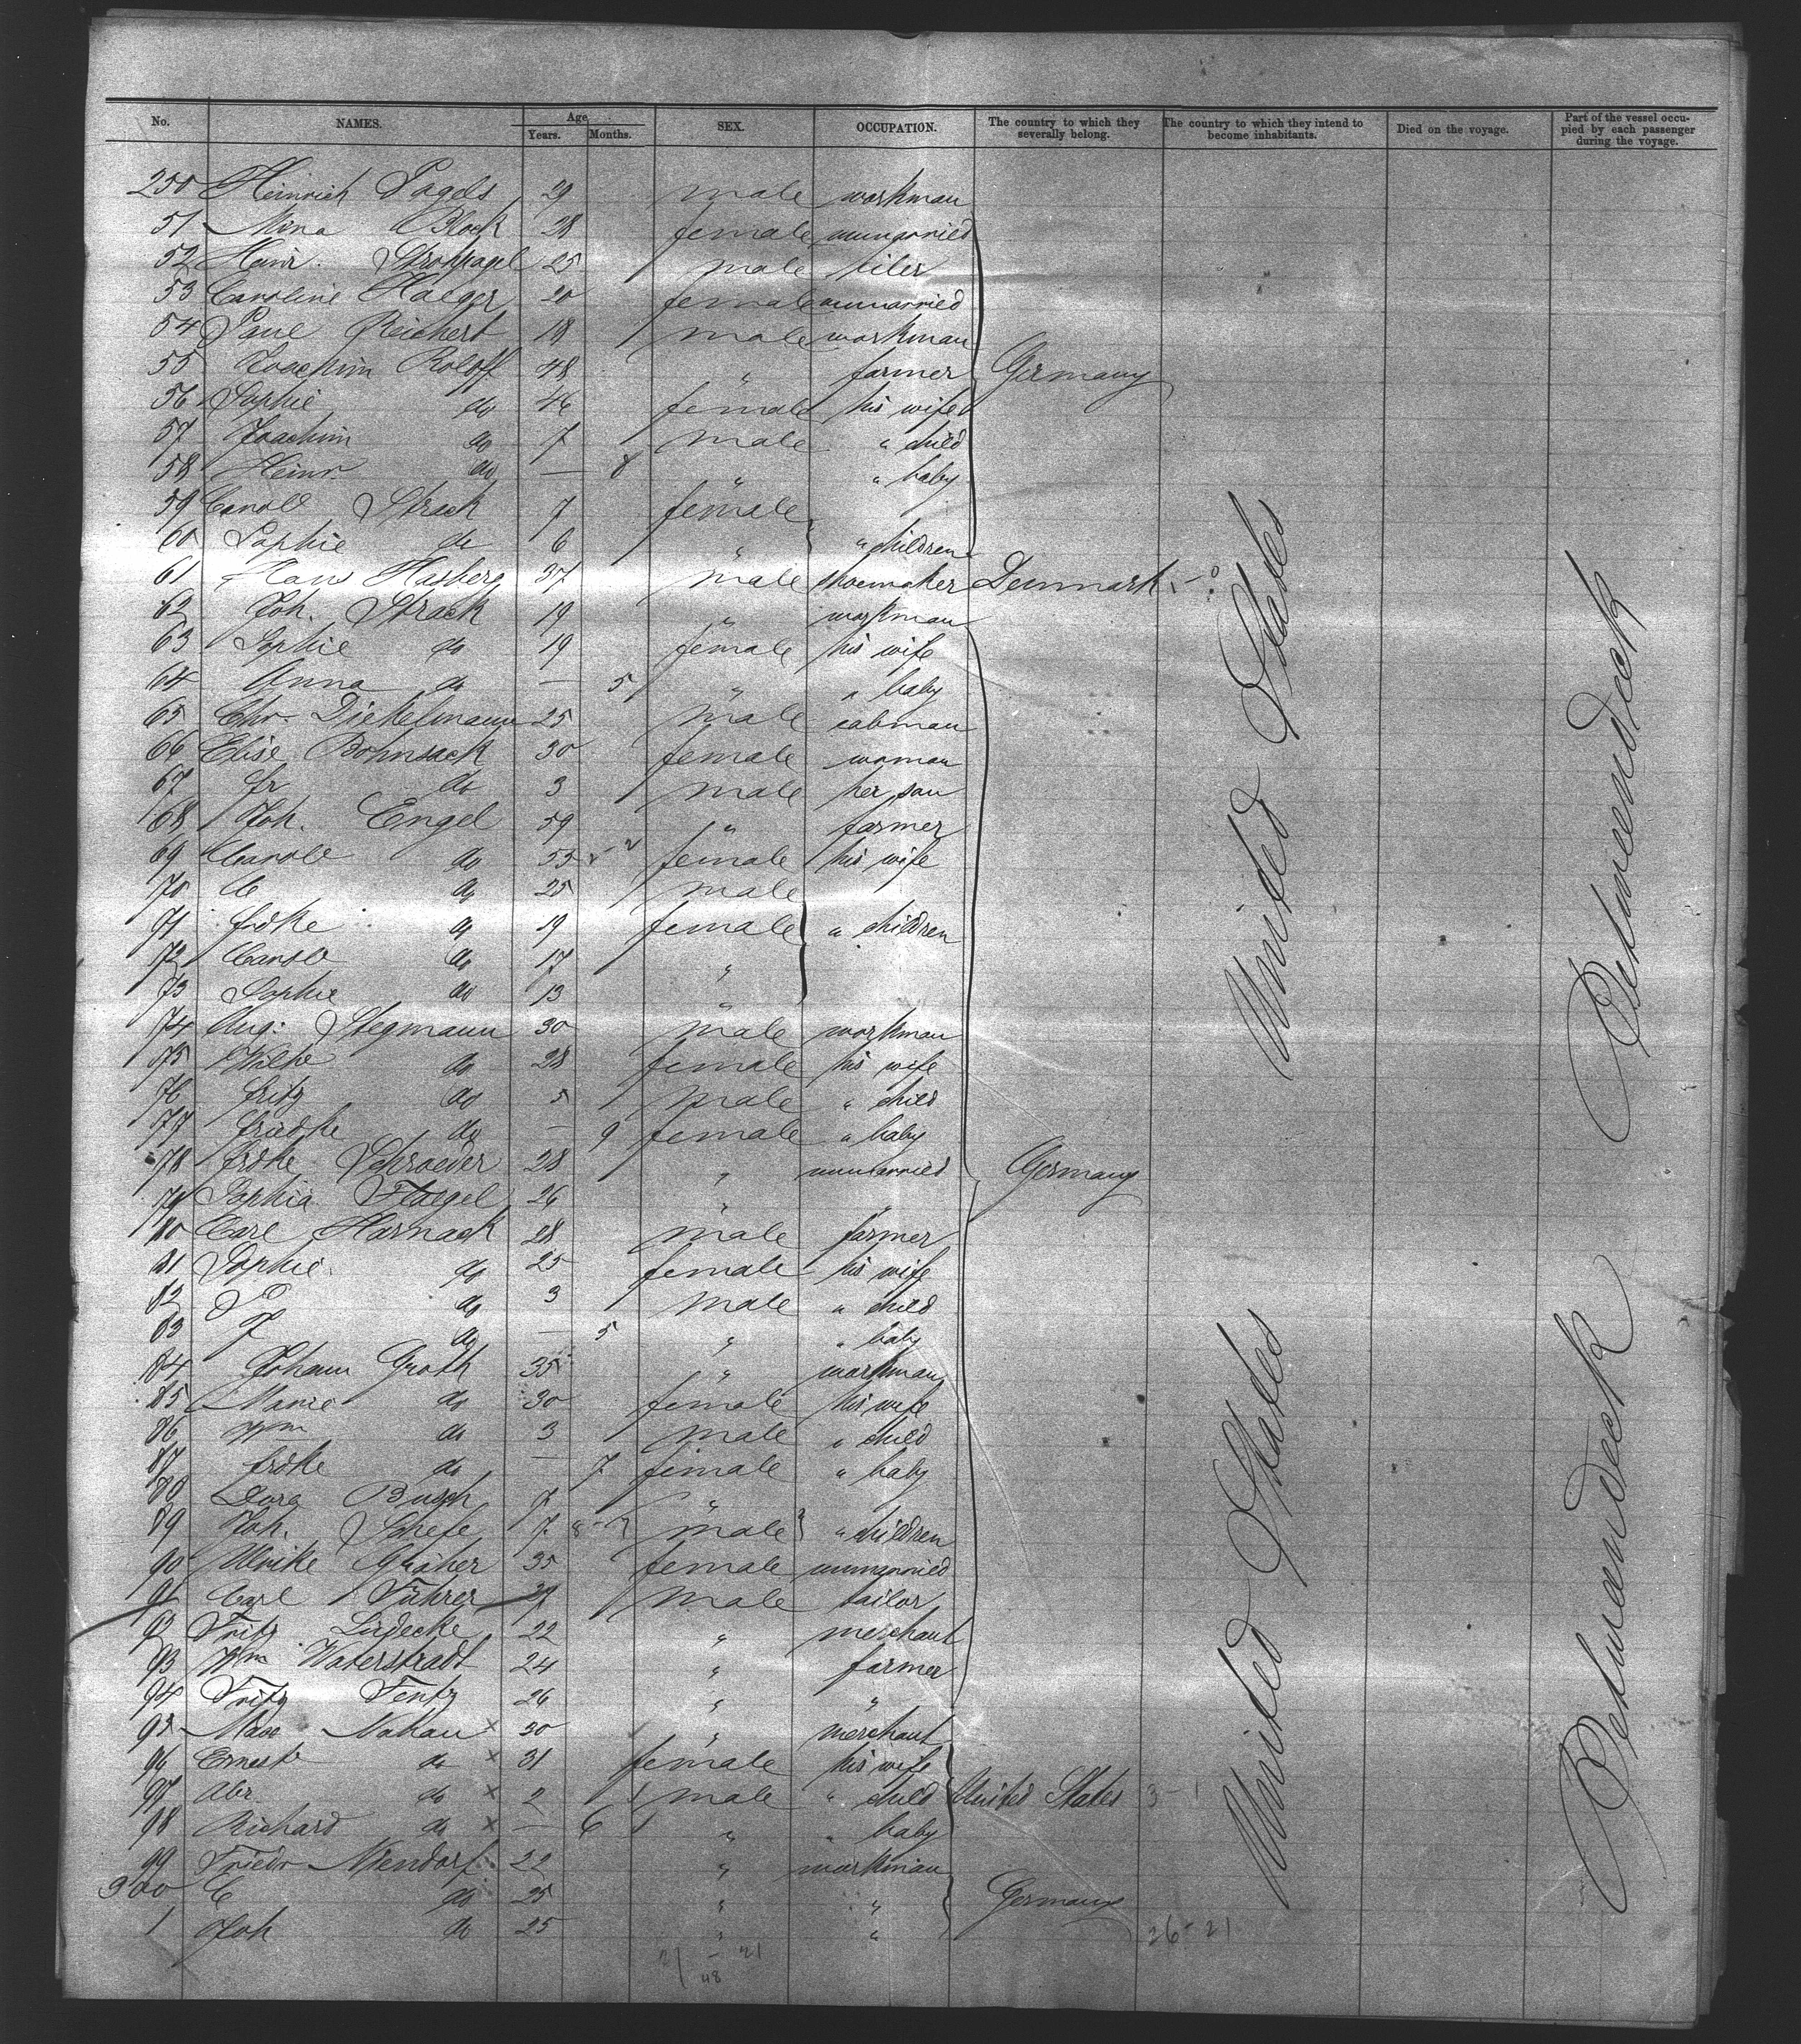 No. NAMES. Age Years. Months. SEX. OCCUPATION. The country to which they severally belong. The country to which they intend to become inhabitants. Died on the voyage. Part of the vessel occupied by each passenger during the voyage.
250 Heinrich Pagels 29 male workman
51 Mina Block 28 female unmarried
52 Heinr. Strohpagel 25 male tiler
53 Caroline Haeger 20 female unmarried
54 Paul Reichert 18 male workman
55 Joachim Roloff 48 " farmer Germany
56 Sophie do 46 female his wife
57 Joachim do 7 male " child
58 Heinr. do — 8 " " baby
59 Carol Strack 7 female
60 Sophie do 6 " " children
61 Hans Hasberg 37 male shoemaker Denmark
62 Joh. Strack 19 " workman
63 Sophie do 19 female his wife
64 Anna do — 5 " " baby
65 Chr. Diekelmann 25 male cabman
66 Elise Bohnsack 30 female woman
67 fr do 3 male her son
68 Joh. Engel 59 " farmer
69 Carol do 55 female his wife
70 C do 25 male
71 frdke do 19 female " children
72 Carol do 17 "
73 Sophie do 13 "
74 Aug: Stegmann 30 male workman
75 Wilhe do 28 female his wife
76 fritz do 5 male " child
77 friedke do — 9 female " baby
78 frdke Schroeder 28 " unmarried Germany
79 Sophia Flaegel 26 " "
80 Carl Harnack 28 male farmer
81 Sophie do 25 female his wife
82 do 3 male " child
83 do — 5 " " baby
84 Johann Groth 35 " workman
85 Marie do 30 female his wife
86 Wm do 3 male " child
87 frdke do — 7 female " baby
88 Dora Busch 7 "
89 Joh. Schefe 7 male " children
90 Ulrike 35 female unmarried
91 Carl Führer male tailor
92 Fritz Lüdecke 22 " merchant
93 Wm Waterstradt 24 " farmer
94 Fritz Fentz 26 " "
95 Max Nathan x 30 " merchant
96 Ernest do x 31 female his wife
97 Abr. do x 2 male " child United States 3-1
98 Richard do x — 6 " " baby
99 Friedr Niendorf 22 " workman
300 C do 25 " " Germany
1 Joh do 25 " "
26-21
21 - 21
48
United States
Betweendeck
United States
Betweendeck